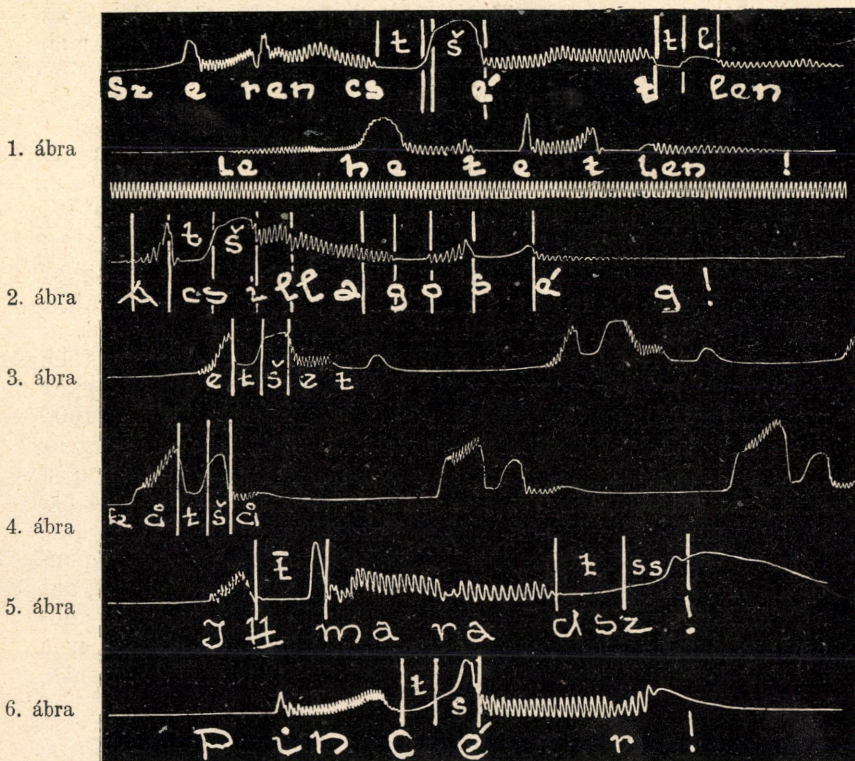 t š t l
Sz e ren cs é t len
1. ábra
Le he t e t len !
t š
2. ábra
A cs i ll a g o s é g !
3. ábra
e t š e t
k å t š å
4. ábra
t̄ t ss
5. ábra
I tt ma ra dsz !
t s
6. ábra
P in c é r !